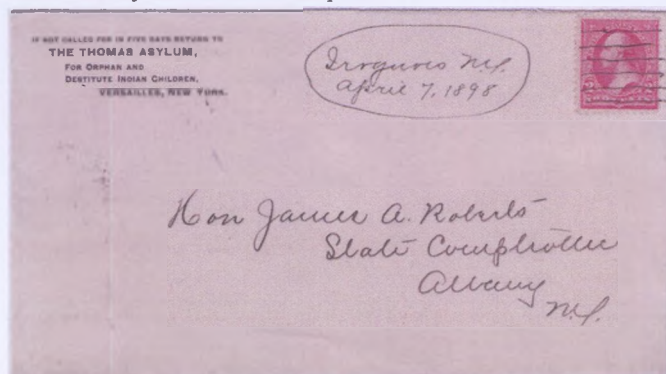 IF NOT CALLED FOR IN FIVE DAYS RETURN TO
THE THOMAS ASYLUM,
FOR ORPHAN AND
DESTITUTE INDIAN CHILDREN,
VERSAILLES, NEW YORK.
Iroquois N.Y.
April 7, 1898
Hon James A. Roberts
State Comptroller
Albany
N.Y.